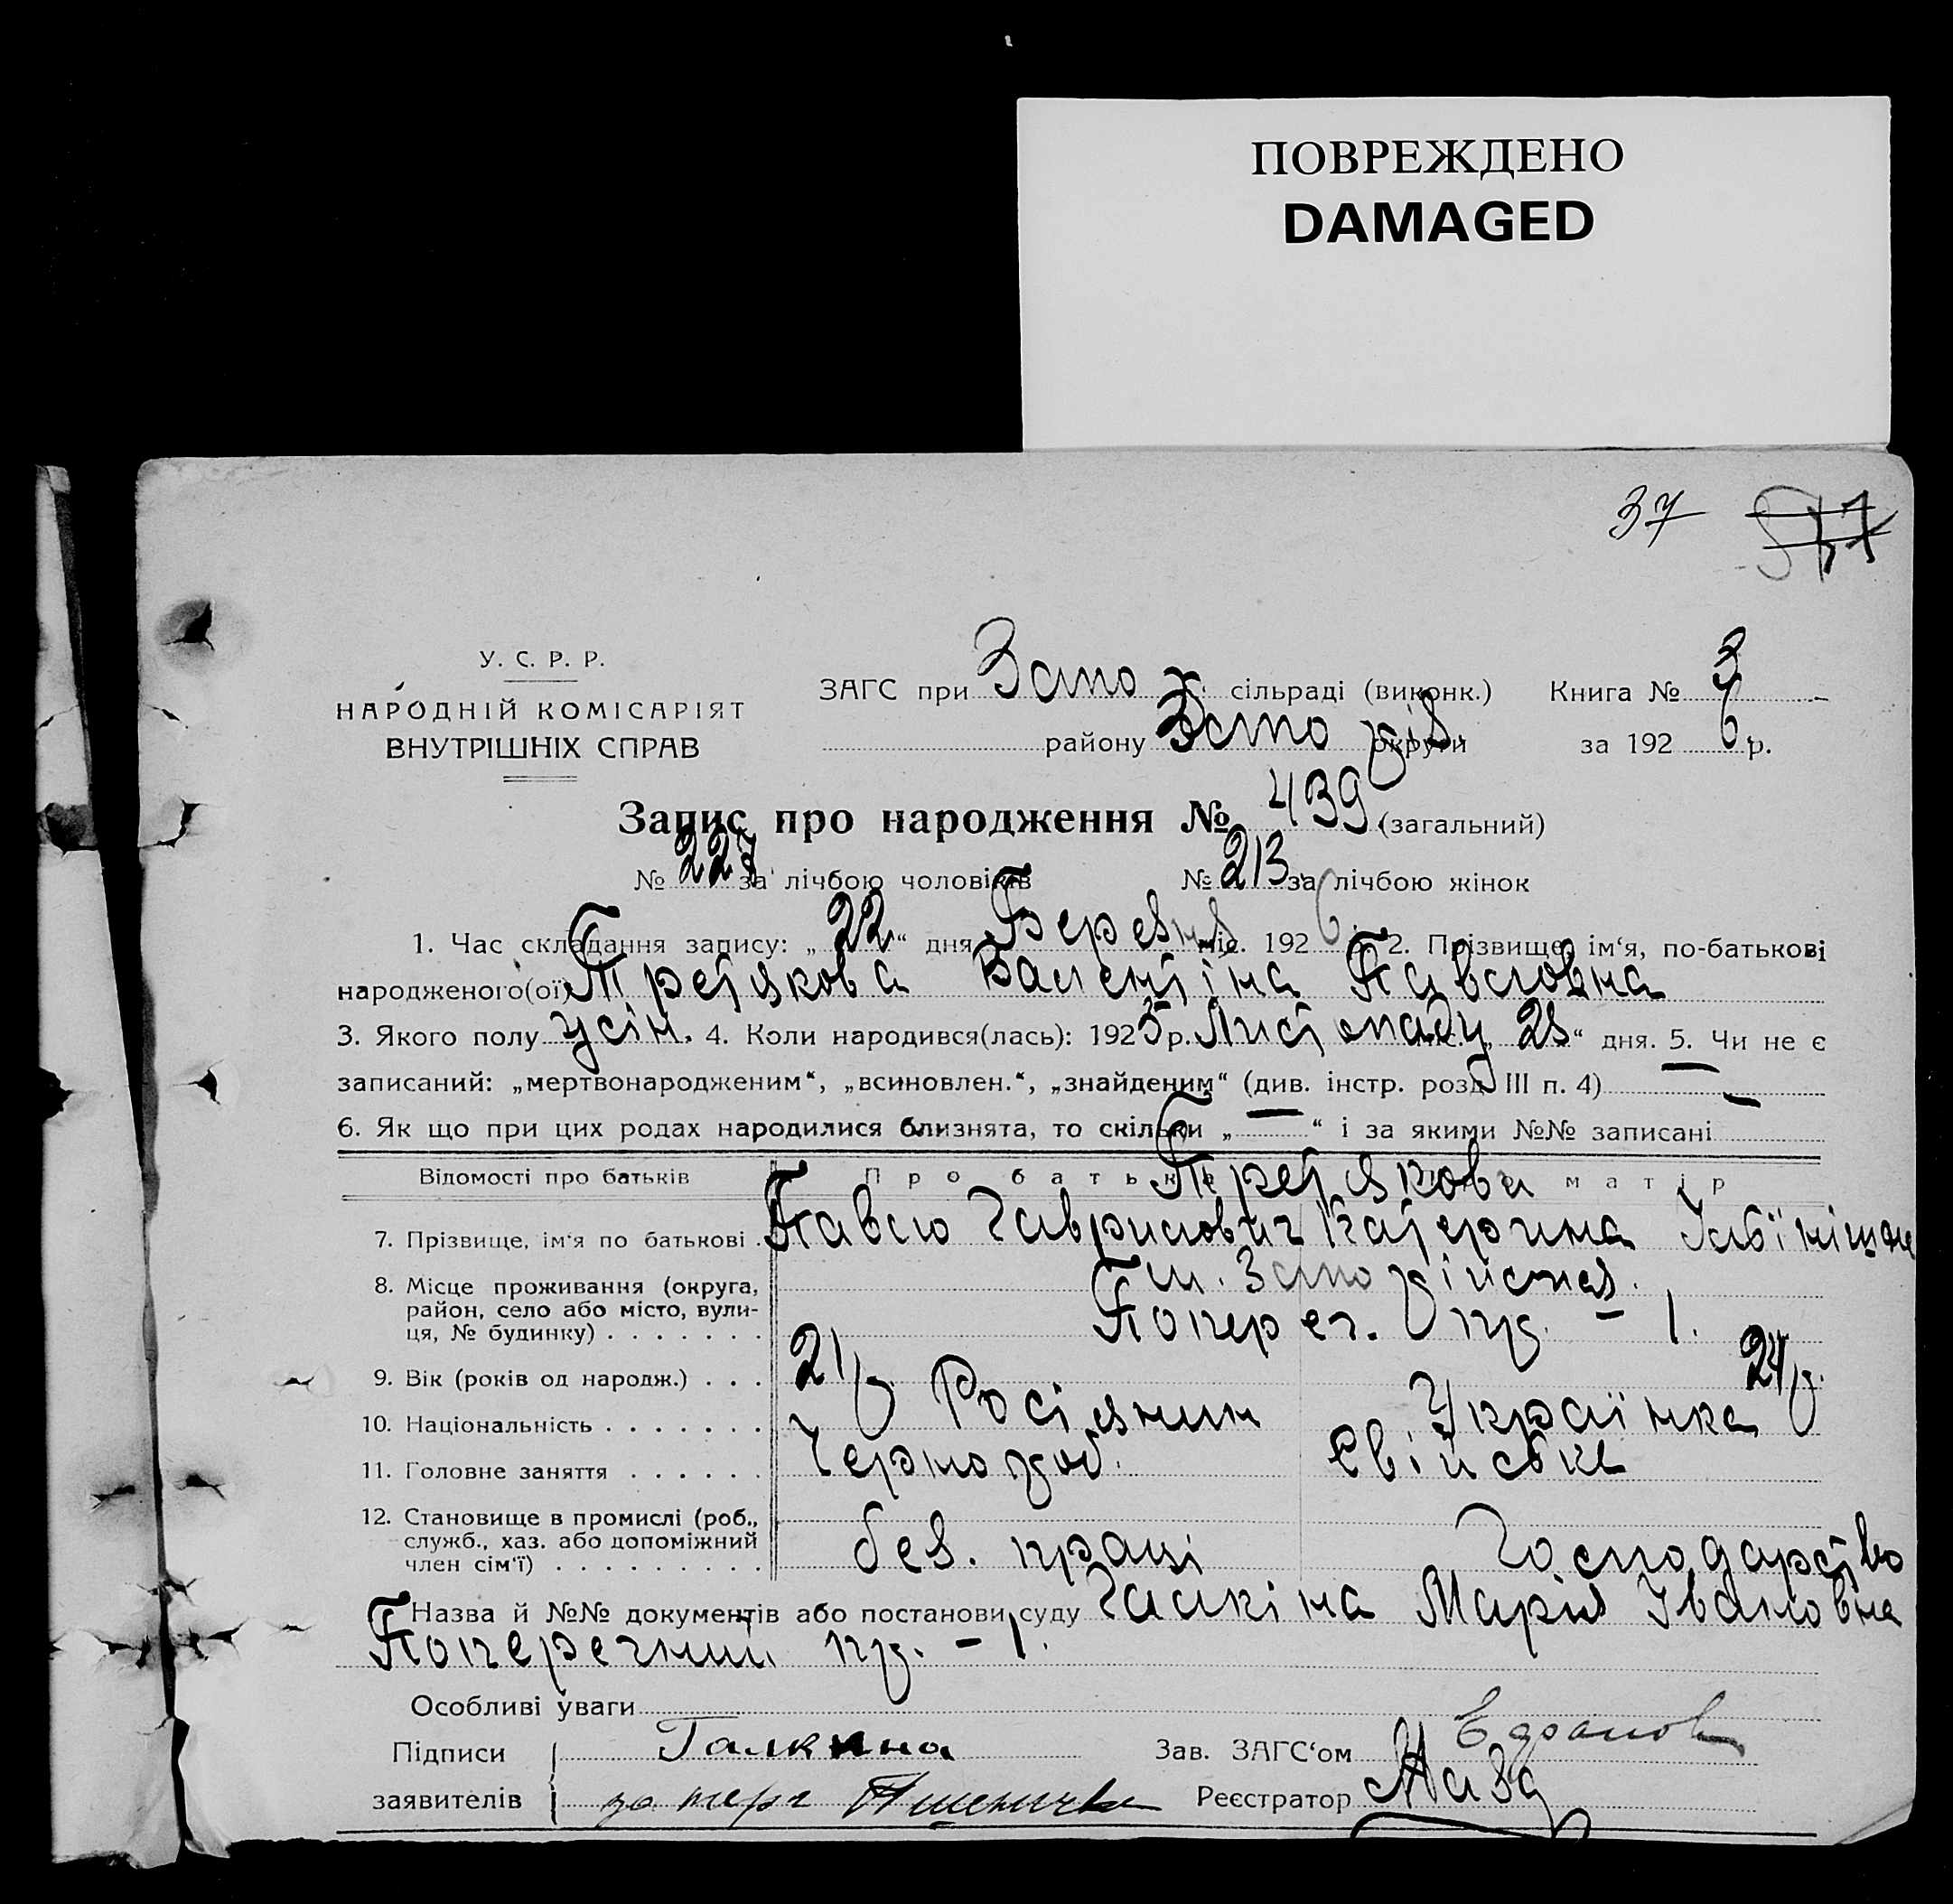 ПОВРЕЖДЕНО
DAMAGED
37
У. С. Р. Р.
НАРОДНІЙ КОМІСАРІЯТ
ВНУТРІШНІХ СПРАВ
ЗАГС при Запо сільраді (виконк.) Книга № 3
району Запоріз. округи за 192 6 р.
Запис про народження № 439 (загальний)
№ 227 за лічбою чоловіків № 213 за лічбою жінок
1. Час складання запису: „22“ дня Березня міс. 192 6 2. Прізвище, ім‘я, по-батькові
народженого(ої) Третякова Валентіна Павловна
3. Якого полу 4. Коли народився(лась): 1925 р. Листопаду міс. „28“ дня. 5. Чи не є
записаний: „мертвонародженим“, „всиновлен.“, „знайденим“ (див. інстр. розд. III п. 4) —
6. Як що при цих родах народилися близнята, то скільки „—“ і за якими №№ записані
Відомості про батьків Про батька матір
Третякови
7. Прізвище, ім‘я по батькові . Павло Гаврилович Катерина
8. Місце проживання (округа, район, село або місто, вулиця, № будинку) . . . . . . . м. Запоріжжя.
Попереч. пр. – 1.
9. Вік (років од народж.) . . . 21 р 24 р.
10. Національність . . . . . . . Росіянин Українка
11. Головне заняття . . . . . . Чорнороб. Свійське
12. Становище в промислі (роб., служб., хаз. або допоміжний член сім‘ї) . . . . . . . . . без. праці Господарство
Назва й №№ документів або постанови суду Галкіна Марія Івановна
Поперечний пр. – 1.
Особливі уваги
Підписи Галкина Зав. ЗАГС‘ом
заявителів Реєстратор